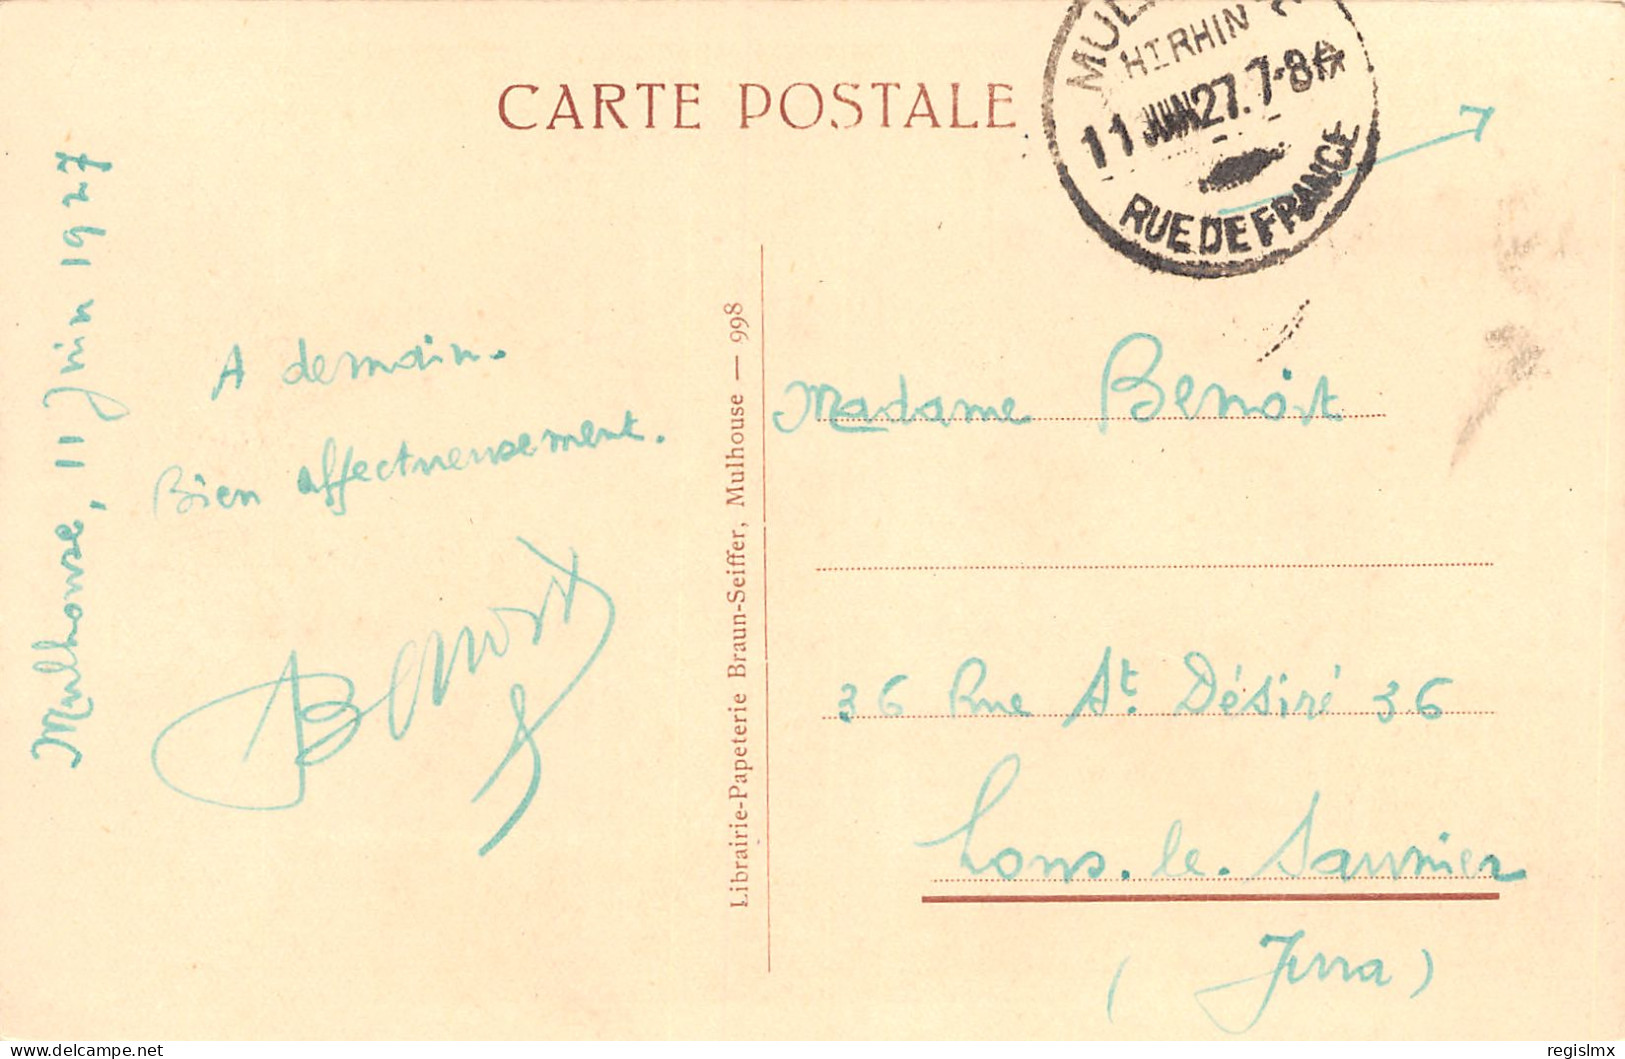 CARTE POSTALE
HT RHIN
11 JUIN 27. 7-8
RUE DE FRANCE
Mulhouse, 11 juin 1927
A demain.
Bien affectueusement.
Benoit
Librairie-Papeterie Braun-Seiffer, Mulhouse — 998
Madame Benoit
36 Rue St. Désiré 36
Lons.le.Saunier
(Jura)
delcampe.net
regislmx